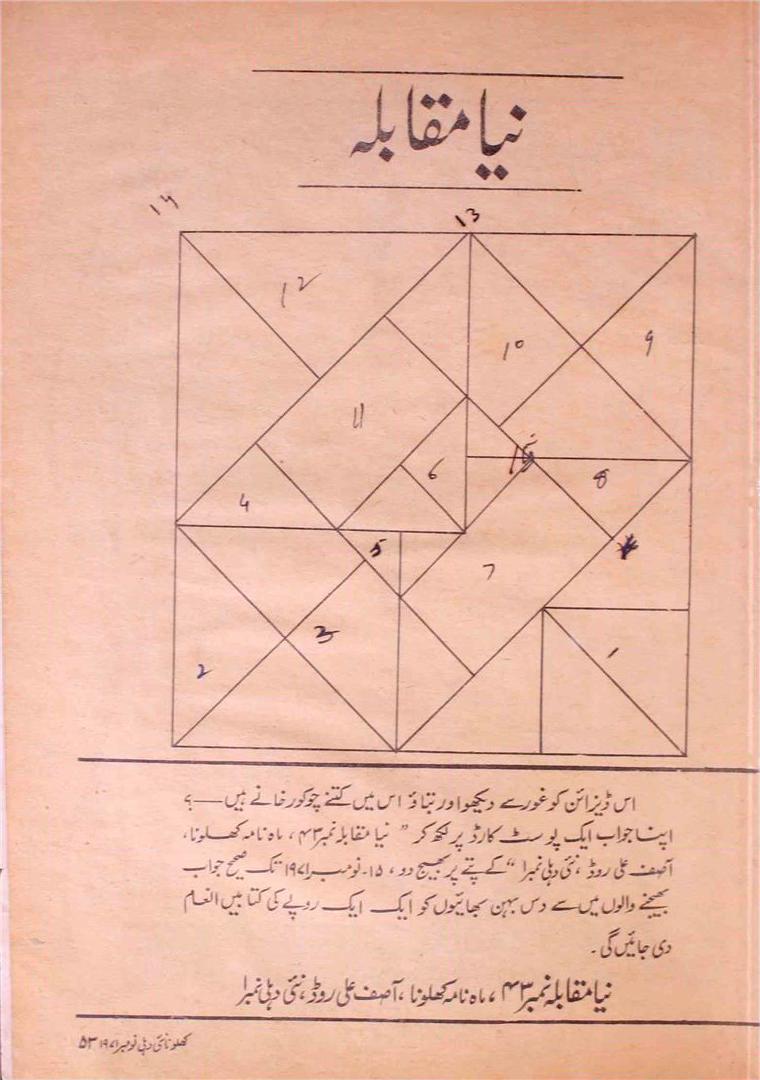 نیا مقابلہ
14
13
12
10
9
11
6
15
8
4
5
7
3
1
2
اس ڈیزائن کو غور سے دیکھو اور بتاؤ اس میں کتنے چوکور خانے ہیں ــــ؟
اپنا جواب ایک پوسٹ کارڈ پر لکھ کر " نیا مقابلہ نمبر ۴۳، ماہ نامہ کھلونا،
آصف علی روڈ، نئی دہلی نمبر۱ " کے پتے پر بھیج دو، ۱۵۔نومبر ۱۹۷۱ تک صحیح جواب
بھیجنے والوں میں سے دس بہن بھائیوں کو ایک ایک روپے کی کتابیں انعام
دی جائیں گی۔
نیا مقابلہ نمبر ۴۳، ماہ نامہ کھلونا، آصف علی روڈ، نئی دہلی نمبر۱
کھلونا نئی دہلی نومبر ۱۹۷۱ ۵۳